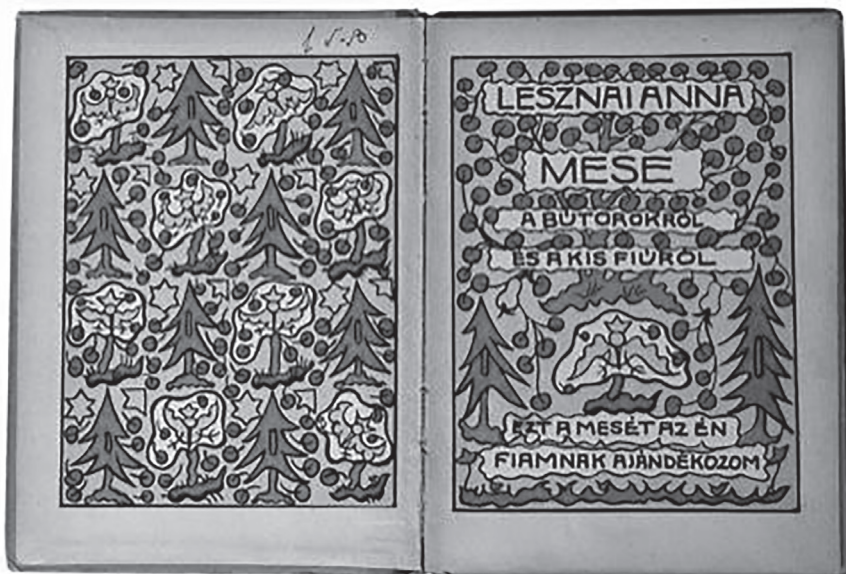 LESZNAI ANNA
MESE
A BÚTOROKRÓL
ÉS A KIS FIÚRÓL
EZT A MESÉT AZ ÉN
FIAMNAK AJÁNDÉKOZOM